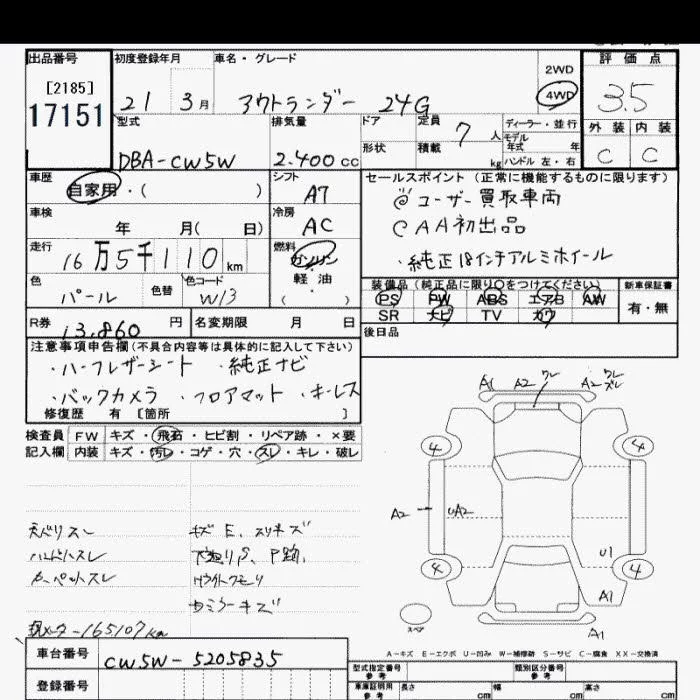 出品番号 初度登録年月 車名・グレード 2WD 評価点
[2185] 17151 21 3月 アウトランダー 24G 4WD 3.5
型式 排気量 ドア 定員 7人 ディーラー・並行 外装 内装
形状 積載 kg モデル年式 年 ハンドル 左・右
DBA-CW5W 2.400cc C C
車歴 シフト セールスポイント(正常に機能するものに限ります)
自家用・( ) A7 ユーザー買取車両
車検 年 月( 日) 冷房 AC AA初出品
走行 16万5千110km 燃料 ガソリン ・純正18インチアルミホイール
色 パール 色替 色コード W13 軽・油 ( )
装備品(純正品に限り○をつけてください) 新車保証書
PS PW ABS エアB AW 有・無
SR ナビ TV カワ
R券 13,860円 名変期限 月 日 後日品
注意事項申告欄(不具合内容等は具体的に記入して下さい)
・ハーフレザーシート ・純正ナビ
・バックカメラ ・フロアマット ・キーレス
修復歴 有 [箇所 ]
検査員 FW キズ・飛石・ヒビ割・リペア跡・×要
記入欄 内装 キズ・汚レ・コゲ・穴・スレ・キレ・破レ
A1 A2 ワレ A2 ワレ ズレ
4 4
A2 UA2
U1
4 4
A1
スペア A1
天バリスレ キズ E、スリキズ
ハンドルスレ
カーペットスレ
ドミラーキズ
現メーター165107km
A-キズ E-エクボ U-凹み W-補修跡 S-サビ C-腐食 XX-交換済
車台番号 CW5W-5205835 型式指定番号 参考 類別区分番号 参考
登録番号 車庫証明用 参考 長さ cm 幅 cm 高さ cm